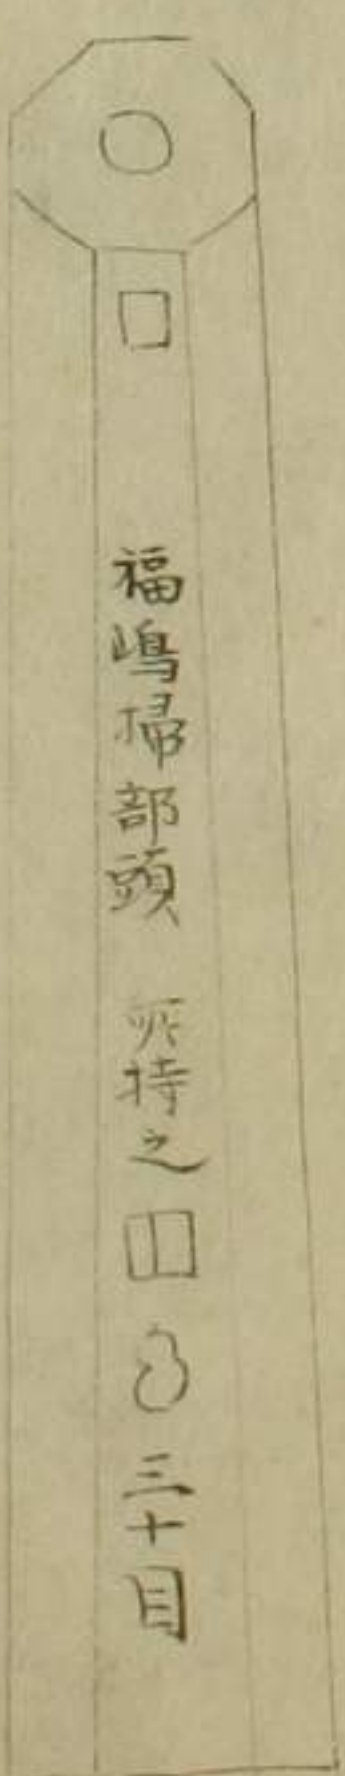 福嶋掃部頭 所持之 三十目